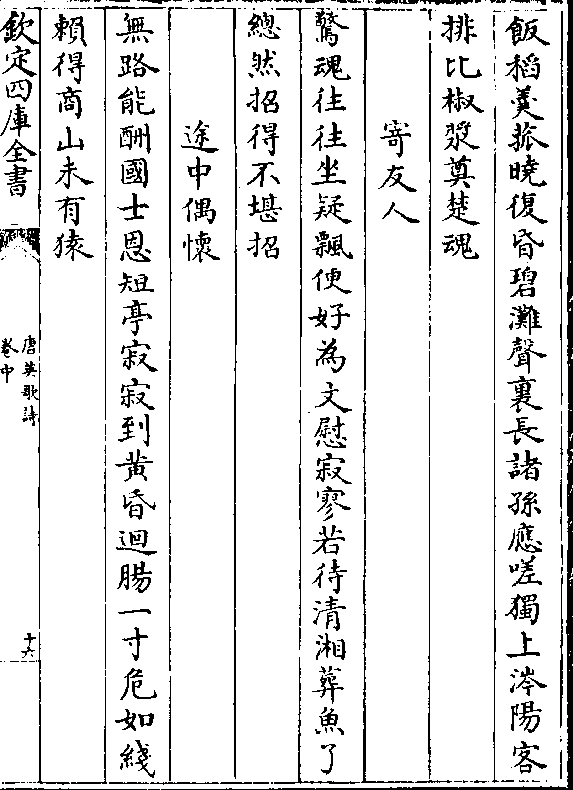 飯稻羮菰曉復昏碧灘聲裏長諸孫應嗟獨上涔陽客
排比椒漿奠楚魂
寄友人
驚魂往往坐疑飄便好為文慰寂寥若待清湘葬魚了
總然招得不堪招
途中偶懷
無路能酬國士恩短亭寂寂到黃昏迴腸一寸危如綫
賴得商山未有猿
欽定四庫全書
唐英歌詩
卷中
十六